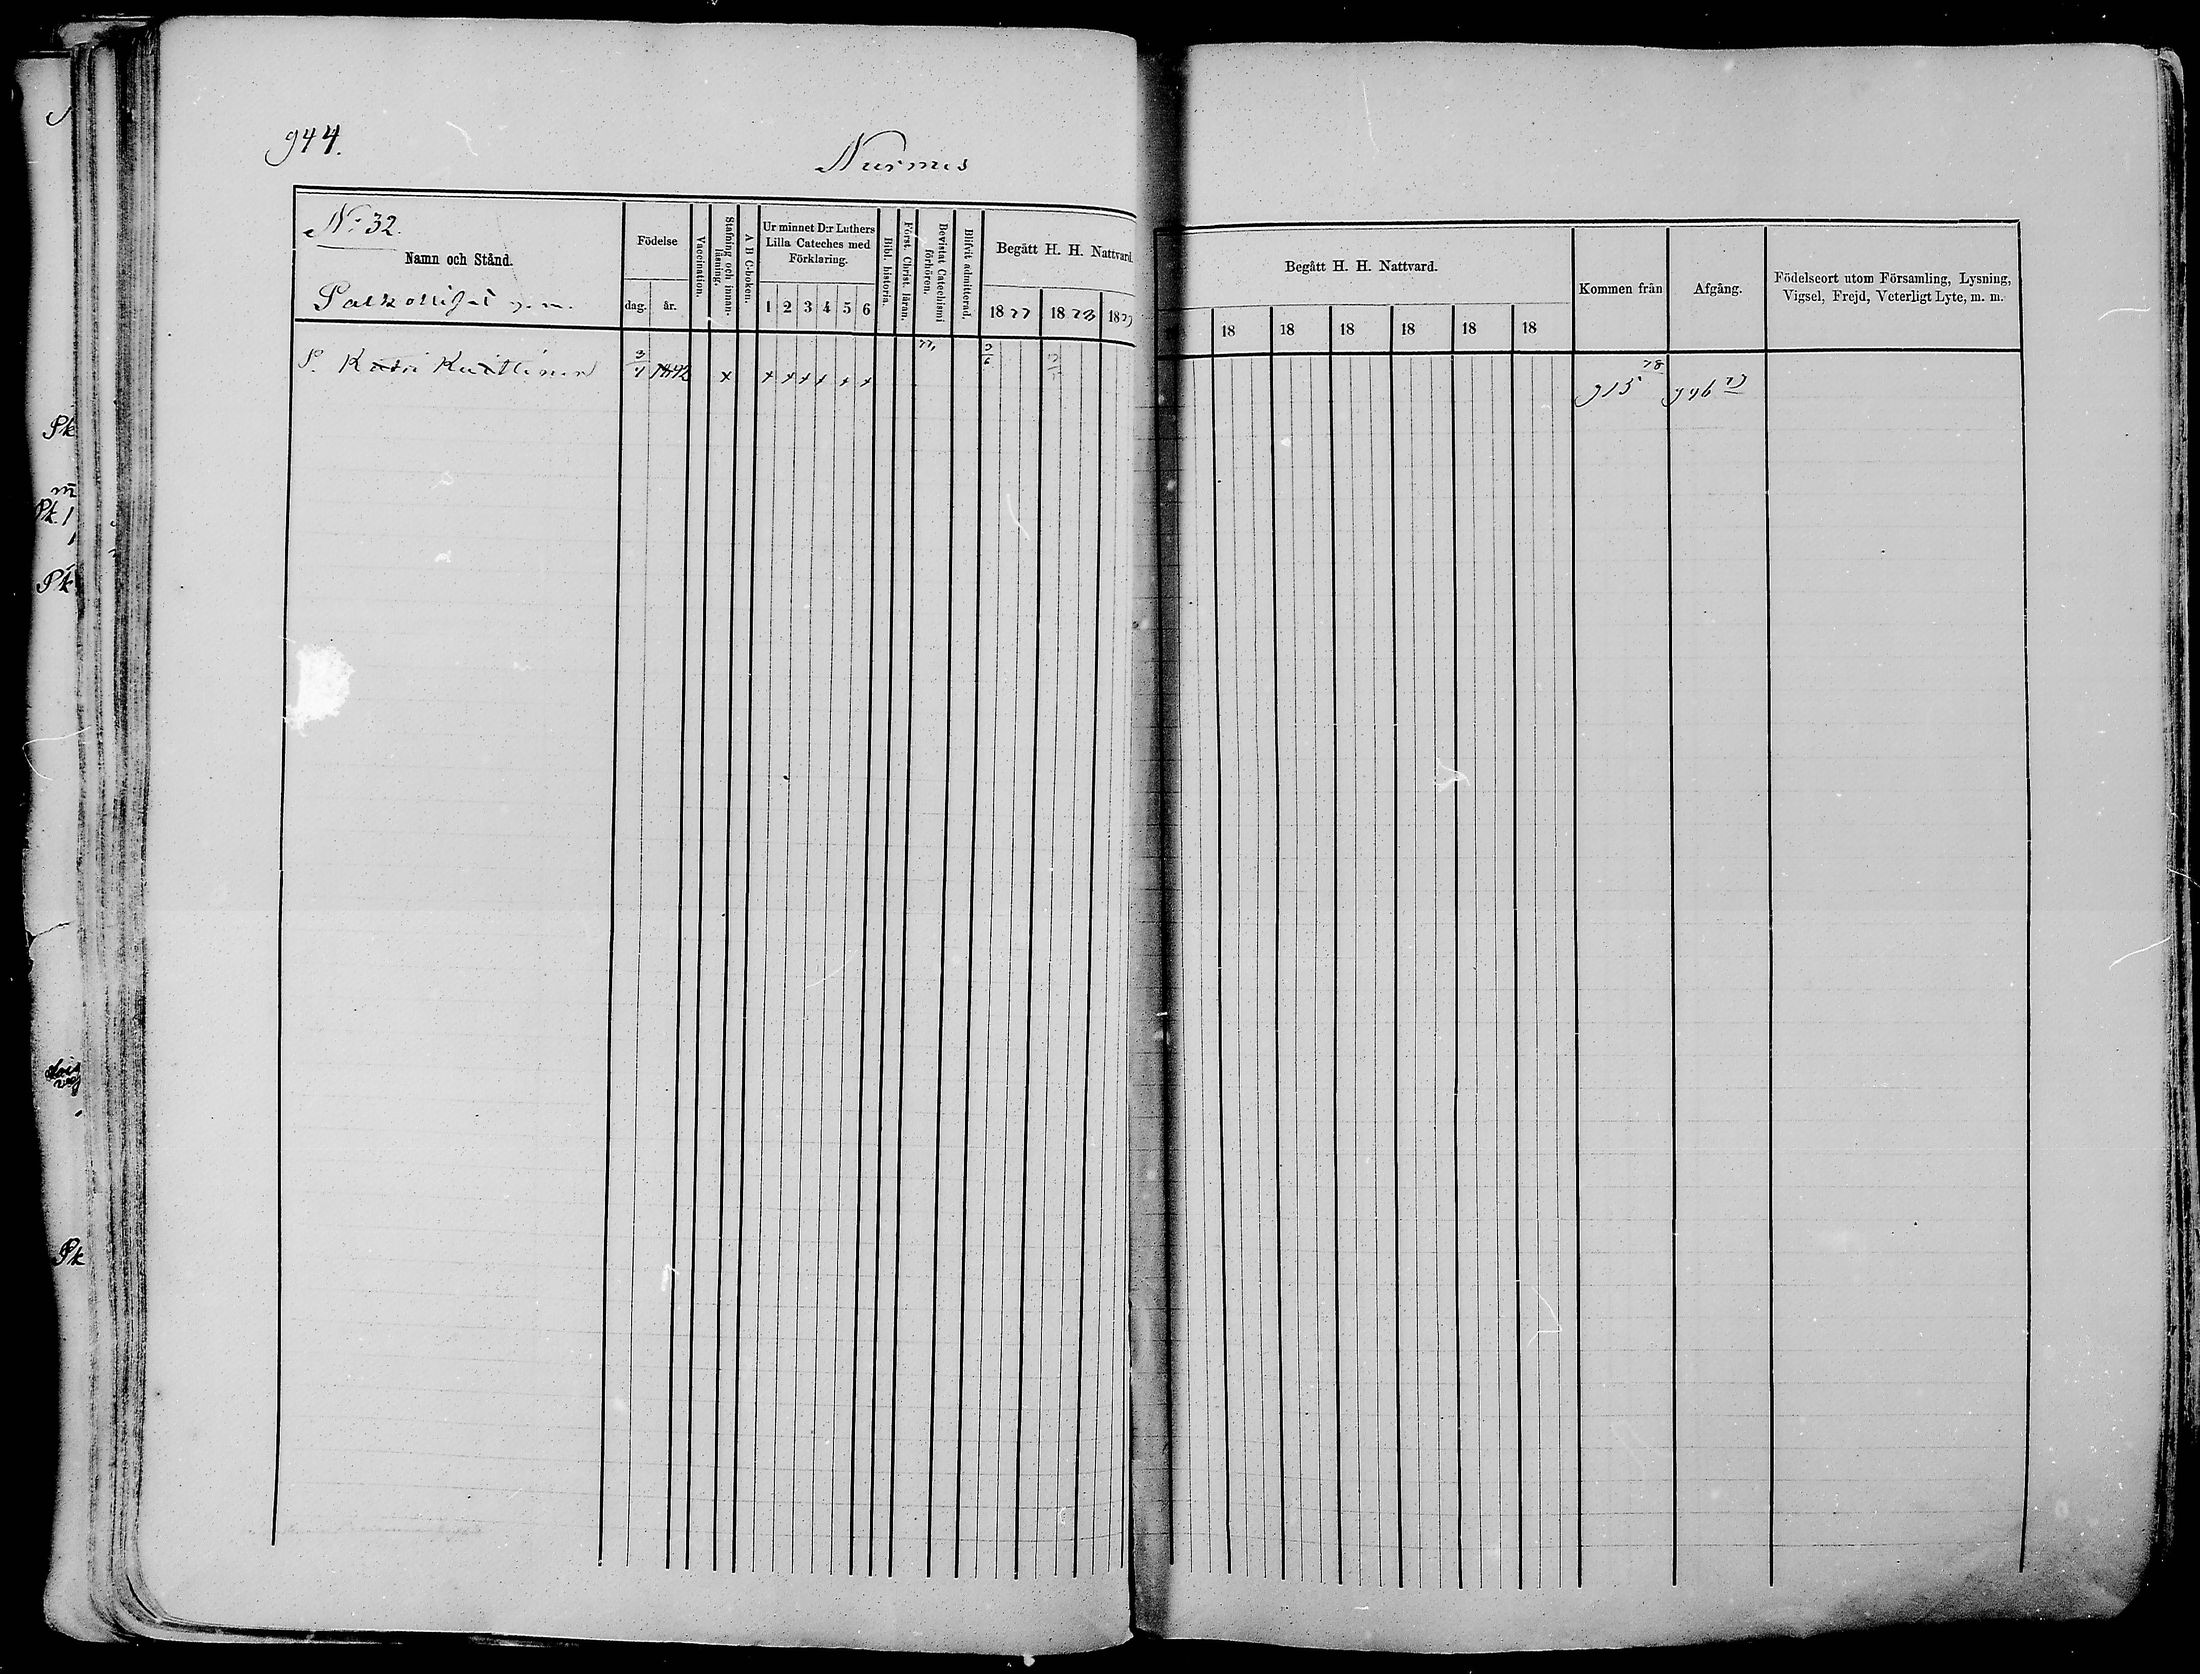 944.
Nurmes
No 32.
Namn och Stånd.
Födelse
dag.
år.
Vaccination.
Stafning och innan-
läsning.
A B C-boken.
Ur minnet D:r Luthers
Lilla Cateches med
Förklaring.
1 2 3 4 5 6
Bibl. historia.
Först. Christ. läran.
Bevistat Catechismi
förhören.
Blifvit admitterad.
Begått H. H. Nattvard.
18 77 18 78 18 79
Begått H. H. Nattvard.
18 18 18 18 18 18
Kommen från
Afgång.
Födelseort utom Församling, Lysning,
Vigsel, Frejd, Veterligt Lyte, m. m.
P. Katri 1842 x x x x x x x 915 78 946 79
Pk
Pk
Pk
Pk